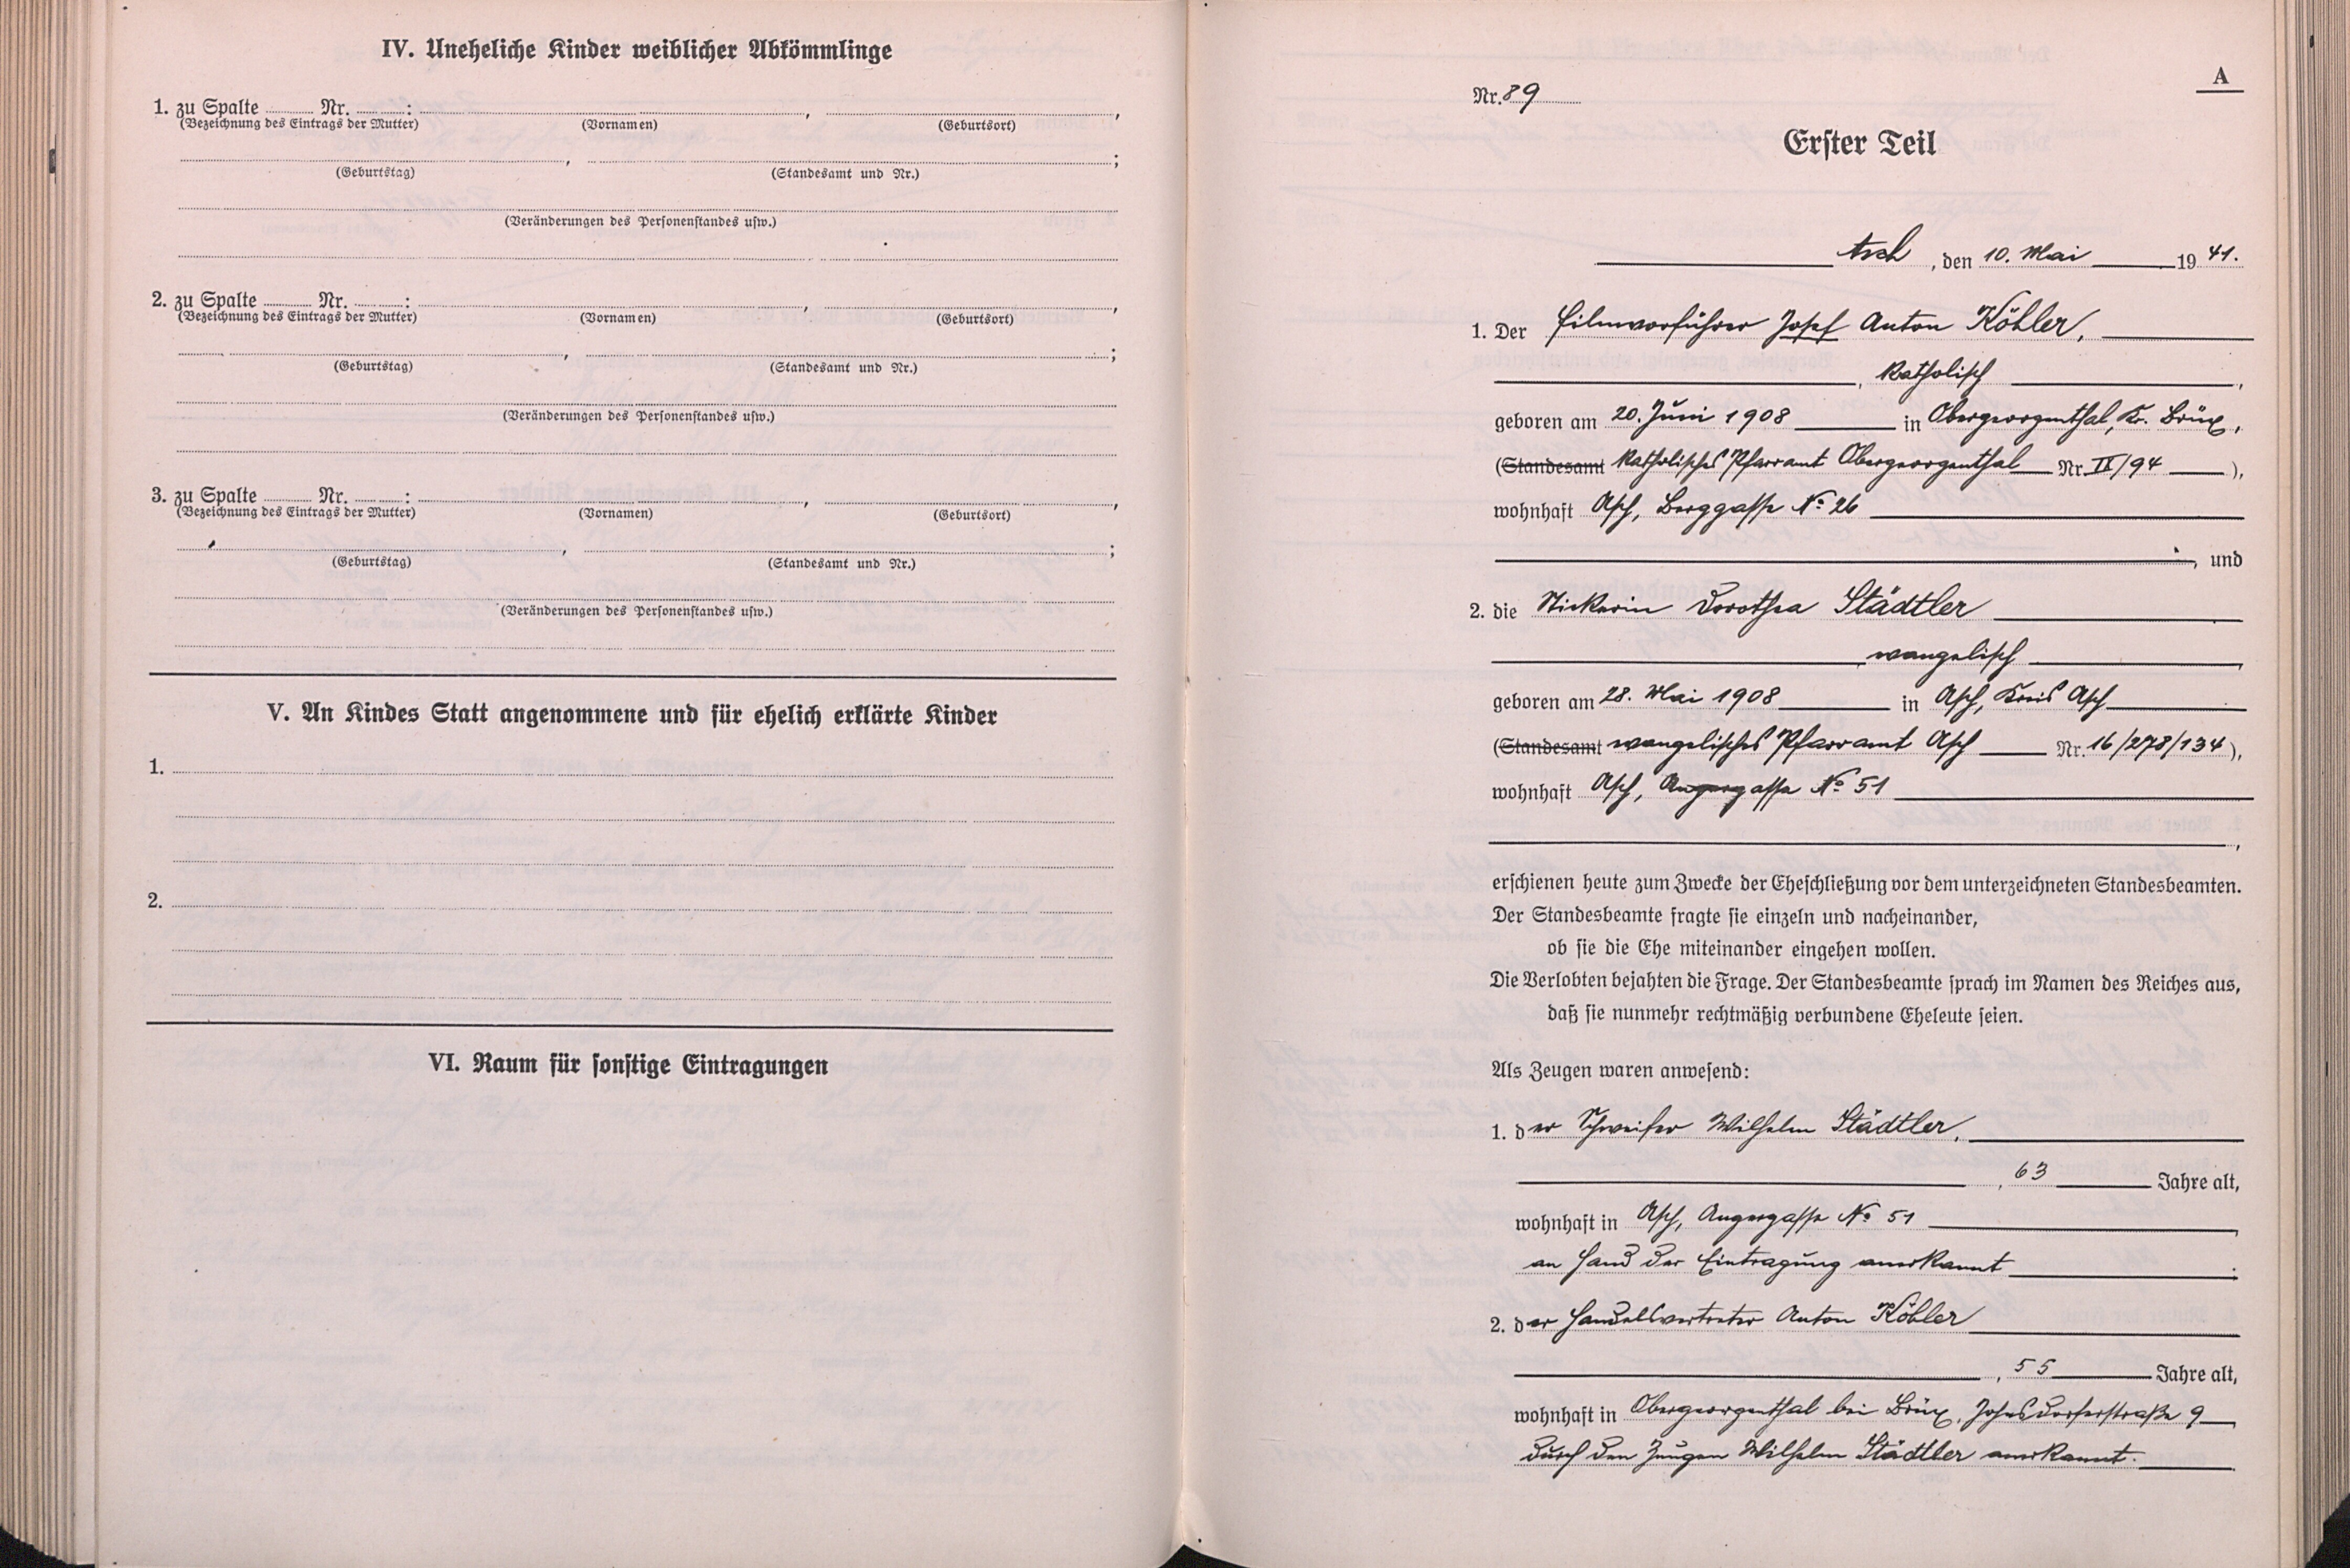 IV. Uneheliche Kinder weiblicher Abkömmlinge
1. zu Spalte ........ Nr. ........:
(Bezeichnung des Eintrags der Mutter) (Vornamen) (Geburtsort)
(Geburtstag) (Standesamt und Nr.)
(Veränderungen des Personenstandes usw.)
2. zu Spalte ........ Nr. ........:
(Bezeichnung des Eintrags der Mutter) (Vornamen) (Geburtsort)
(Geburtstag) (Standesamt und Nr.)
(Veränderungen des Personenstandes usw.)
3. zu Spalte ........ Nr. ........:
(Bezeichnung des Eintrags der Mutter) (Vornamen) (Geburtsort)
(Geburtstag) (Standesamt und Nr.)
(Veränderungen des Personenstandes usw.)
V. An Kindes Statt angenommene und für ehelich erklärte Kinder
1.
2.
VI. Raum für sonstige Eintragungen
A
Nr. 89
Erster Teil
Asch, den 10. Mai 1941.
1. Der Filmvorführer Josef Anton Köhler,
, katholisch,
geboren am 20. Juni 1908 in Obergeorgenthal, Kr. Brüx,
(Standesamt katholisches Pfarramt Obergeorgenthal Nr. II/94),
wohnhaft Asch, Berggasse No 26
, und
2. die Stickerin Dorothea Städtler
evangelisch,
geboren am 28. Mai 1908 in Asch, Kreis Asch
(Standesamt evangelisches Pfarramt Asch Nr. 16/278/134),
wohnhaft Asch, Angergasse No 51
,
erschienen heute zum Zwecke der Eheschließung vor dem unterzeichneten Standesbeamten.
Der Standesbeamte fragte sie einzeln und nacheinander,
ob sie die Ehe miteinander eingehen wollen.
Die Verlobten bejahten die Frage. Der Standesbeamte sprach im Namen des Reiches aus,
daß sie nunmehr rechtmäßig verbundene Eheleute seien.
Als Zeugen waren anwesend:
1. der Schweifer Wilhelm Städtler,
, 63 Jahre alt,
wohnhaft in Asch, Angergasse No 51,
an Hand der Eintragung anerkannt;
2. der Handelsvertreter Anton Köhler
, 55 Jahre alt,
wohnhaft in Obergeorgenthal bei Brüx, Johnsdorferstraße 9
durch den Zeugen Wilhelm Städtler anerkannt.